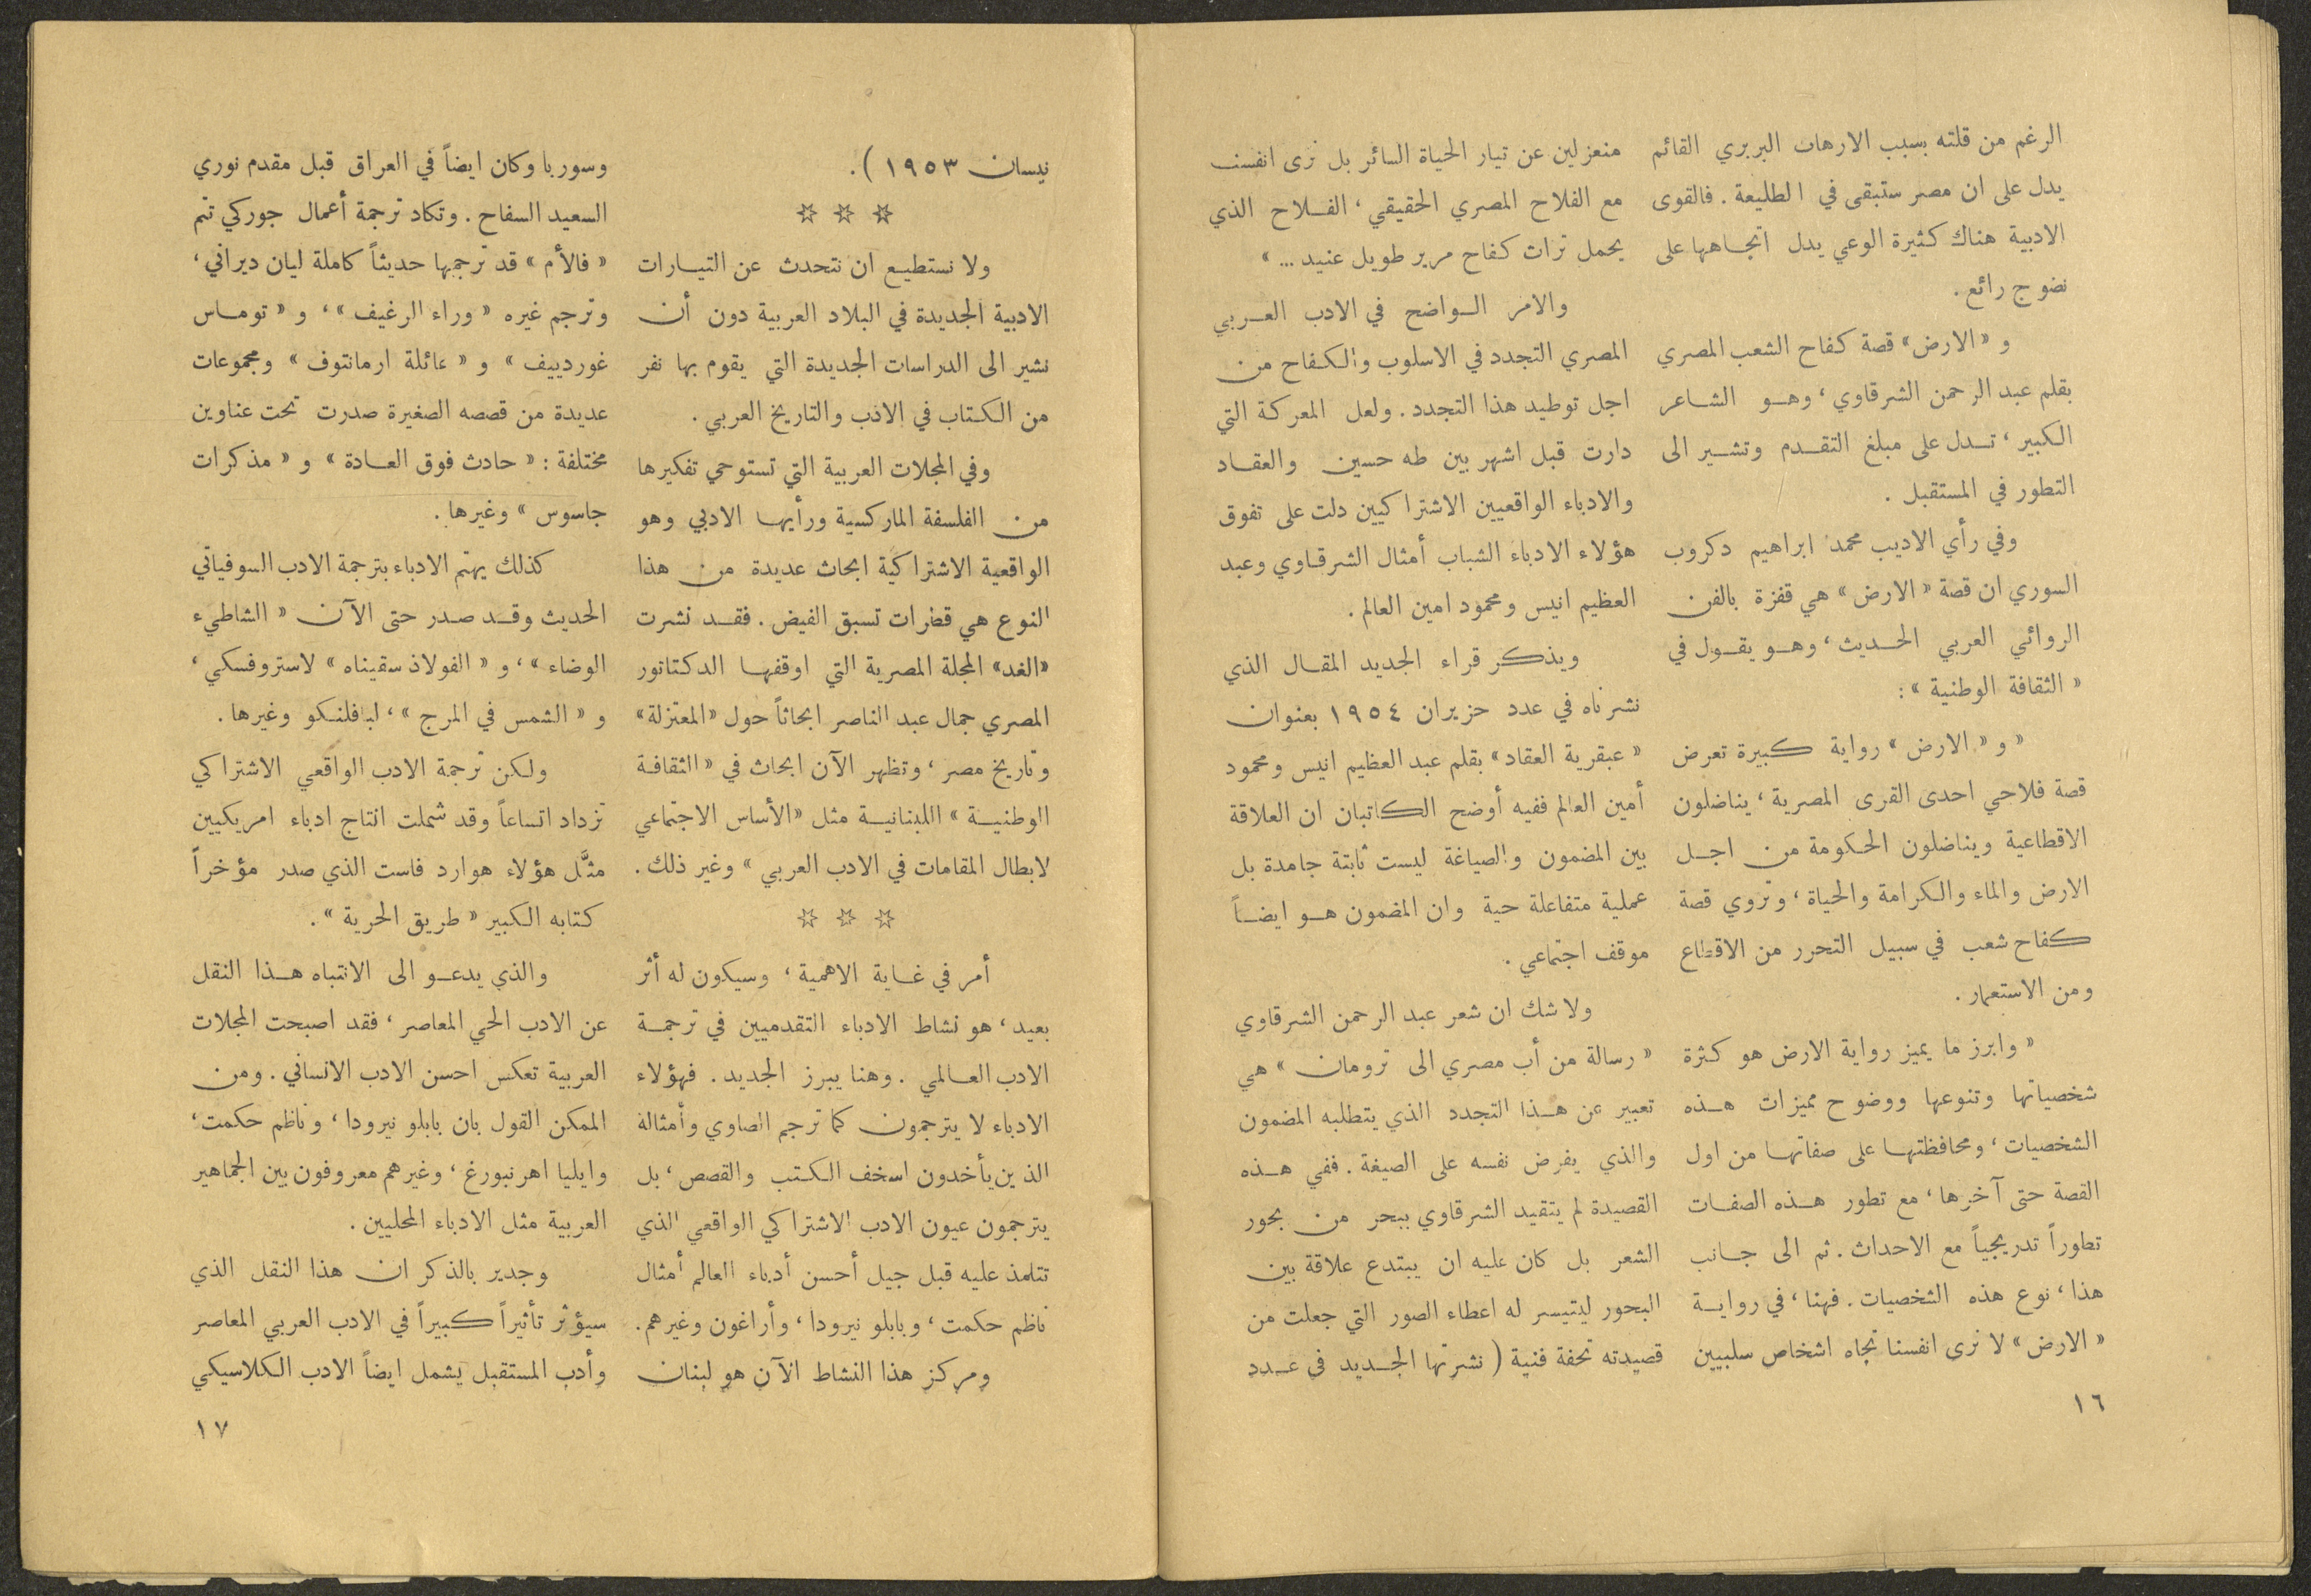 الرغم من قلته بسبب الارهاب البربري القائم
يدل على ان مصر ستبقى في الطليعة . فالقوى
الادبية هناك كثيرة الوعي يدل اتجاهها على
نضوج رائع .
و « الارض » قصة كفاح الشعب المصري
بقلم عبد الرحمن الشرقاوي ، وهو الشاعر
الكبير ، تدل على مبلغ التقدم وتشير الى
التطور في المستقبل .
وفي رأي الاديب محمد ابراهيم دكروب
السوري ان قصة « الارض » هي قفزة بالفن
الروائي العربي الحديث ، وهو يقول في
« الثقافة الوطنية » :
« و « الارض » رواية كبيرة تعرض
قصة فلاحي احدى القرى المصرية ، يناضلون
الاقطاعية ويناضلون الحكومة من اجل
الارض والماء والكرامة والحياة ، وتروي قصة
كفاح شعب في سبيل التحرر من الاقطاع
ومن الاستعمار .
« وابرز ما يميز رواية الارض هو كثرة
شخصياتها وتنوعها ووضوح مميزات هذه
الشخصيات ، ومحافظتها على صفاتها من اول
القصة حتى آخرها ، مع تطور هذه الصفات
تطوراً تدريجياً مع الاحداث . ثم الى جانب
هذا ، نوع هذه الشخصيات . فهنا ، في رواية
« الارض » لا نرى انفسنا تجاه اشخاص سلبيين
منعزلين عن تيار الحياة السائر بل نرى انفسنا
مع الفلاح المصري الحقيقي ، الفلاح الذي
يحمل تراث كفاح مرير طويل عنيد ... »
والامر الواضح في الادب العربي
المصري التجدد في الاسلوب والكفاح من
اجل توطيد هذا التجدد . ولعل المعركة التي
دارت قبل اشهر بين طه حسين والعقاد
والادباء الواقعيين الاشتراكيين دلت على تفوق
هؤلاء الادباء الشباب أمثال الشرقاوي وعبد
العظيم انيس ومحمود امين العالم .
ويذكر قراء الجديد المقال الذي
نشرناه في عدد حزيران ١٩٥٤ بعنوان
« عبقرية العقاد » بقلم عبد العظيم انيس ومحمود
أمين العالم ففيه أوضح الكاتبان ان العلاقة
بين المضمون والصياغة ليست ثابتة جامدة بل
عملية متفاعلة حية وان المضمون هو ايضاً
موقف اجتماعي .
ولا شك ان شعر عبد الرحمن الشرقاوي
« رسالة من أب مصري الى ترومان » هي
تعبير عن هذا التجدد الذي يتطلبه المضمون
والذي يفرض نفسه على الصيغة . ففي هذه
القصيدة لم يتقيد الشرقاوي ببحر من بحور
الشعر بل كان عليه ان يبتدع علاقة بين
البحور ليتيسر له اعطاء الصور التي جعلت من
قصيدته تحفة فنية ( نشرتها الجديد في عدد
١٦
نيسان ١٩٥٣ ) .
☆ ☆ ☆
ولا نستطيع ان نتحدث عن التيارات
الادبية الجديدة في البلاد العربية دون أن
نشير الى الدراسات الجديدة التي يقوم بها نفر
من الكتاب في الادب والتاريخ العربي .
وفي المجلات العربية التي تستوحي تفكيرها
من الفلسفة الماركسية ورأيها الادبي وهو
الواقعية الاشتراكية ابحاث عديدة من هذا
النوع هي قطرات تسبق الفيض . فقد نشرت
«الغد» المجلة المصرية التي اوقفها الدكتاتور
المصري جمال عبد الناصر ابحاثاً حول «المعتزلة»
وتاريخ مصر ، وتظهر الآن ابحاث في « الثقافة
الوطنية » اللبنانية مثل «الأساس الاجتماعي
لابطال المقامات في الادب العربي » وغير ذلك .
☆ ☆ ☆
أمر في غاية الاهمية ، وسيكون له أثر
بعيد ، هو نشاط الادباء التقدميين في ترجمة
الادب العالمي . وهنا يبرز الجديد . فهؤلاء
الادباء لا يترجمون كما ترجم الصاوي وأمثاله
الذين يأخذون اسخف الكتب والقصص ، بل
يترجمون عيون الادب الاشتراكي الواقعي الذي
تتلمذ عليه قبل جيل أحسن أدباء العالم أمثال
ناظم حكمت ، وبابلو نيرودا ، وأراغون وغيرهم .
ومركز هذا النشاط الآن هو لبنان
وسوريا وكان ايضاً في العراق قبل مقدم نوري
السعيد السفاح . وتكاد ترجمة أعمال جوركي تتم
« فالأم » قد ترجمها حديثاً كاملة ليان ديراني ،
وترجم غيره « وراء الرغيف » ، و « توماس
غوردييف » و « عائلة ارمانتوف » ومجموعات
عديدة من قصصه الصغيرة صدرت تحت عناوين
مختلفة : « حادث فوق العادة » و « مذكرات
جاسوس » وغيرها .
كذلك يهتم الادباء بترجمة الادب السوفياتي
الحديث وقد صدر حتى الآن « الشاطيء
الوضاء » ، و « الفولاذ سقيناه » لاستروفسكي ،
و « الشمس في المرج » ، لبافلنكو وغيرها .
ولكن ترجمة الادب الواقعي الاشتراكي
تزداد اتساعاً وقد شملت انتاج ادباء امريكيين
مثَّل هؤلاء هوارد فاست الذي صدر مؤخراً
كتابه الكبير « طريق الحرية » .
والذي يدعو الى الانتباه هذا النقل
عن الادب الحي المعاصر ، فقد اصبحت المجلات
العربية تعكس احسن الادب الانساني . ومن
الممكن القول بان بابلو نيرودا ، وناظم حكمت ،
وايليا اهرنبورغ ، وغيرهم معروفون بين الجماهير
العربية مثل الادباء المحليين .
وجدير بالذكر ان هذا النقل الذي
سيؤثر تأثيراً كبيراً في الادب العربي المعاصر
وأدب المستقبل يشمل ايضاً الادب الكلاسيكي
١٧